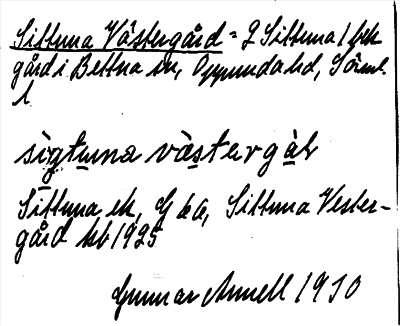 Sittuna Västergård = 2 Sittuna 1 bek
gård i Bettna sn, Oppunda hd, Söml.
l
sigtuna västergåk
Sittuna ek, G e a, Sittuna Vester-
gård kb 1925
Gunnar Annell 1910